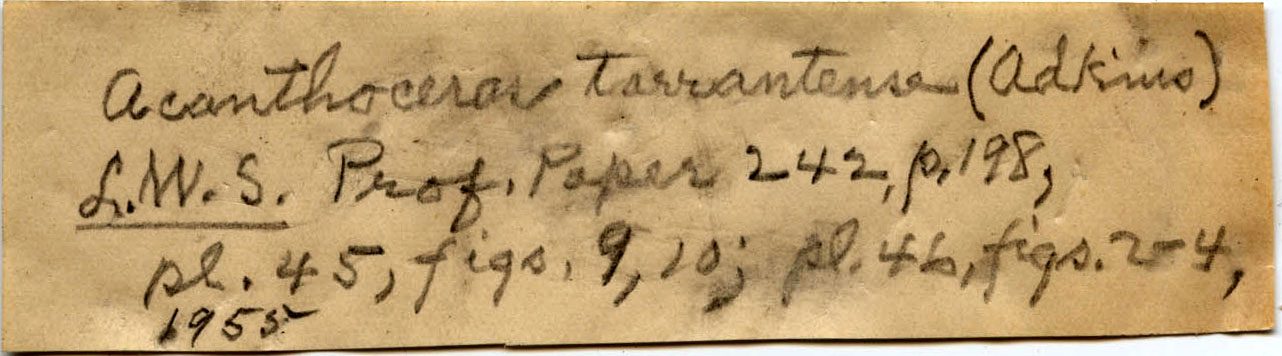 Acanthoceras tarrantense (Adkins)
L.W.S. Prof. Paper 242, p. 198,
pl. 45, figs. 9, 10; pl. 46, figs. 2-4,
1955